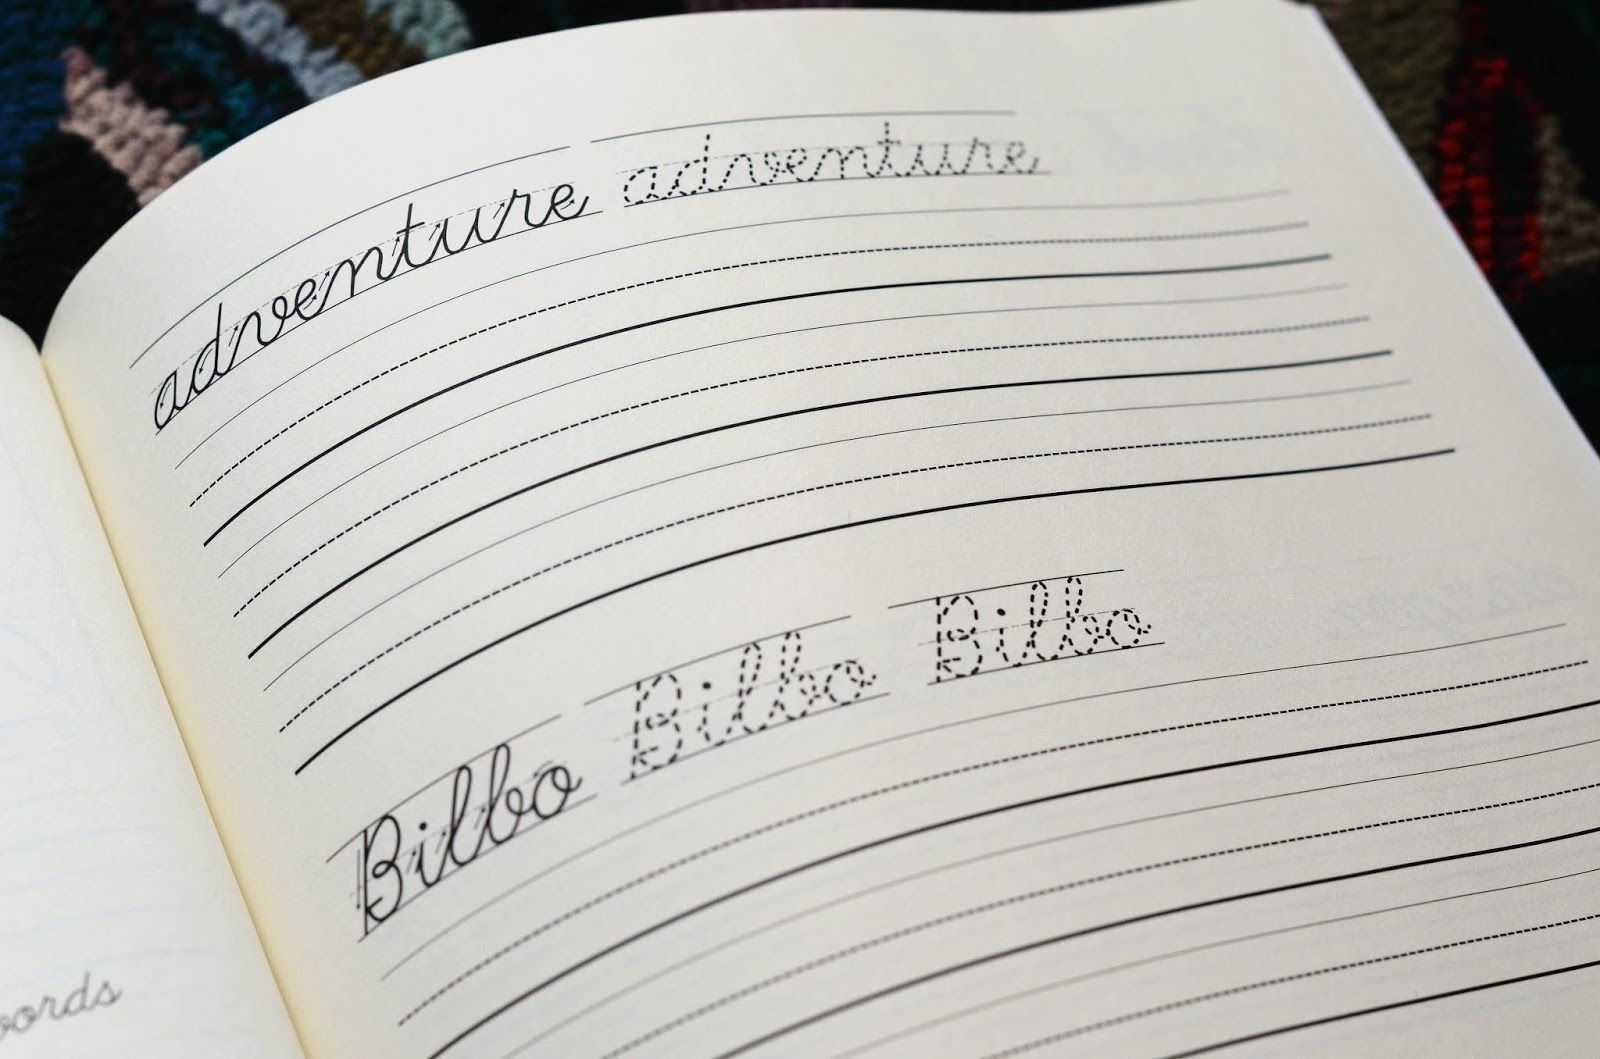 adventure adventure
Bilbo Bilbo Bilbo